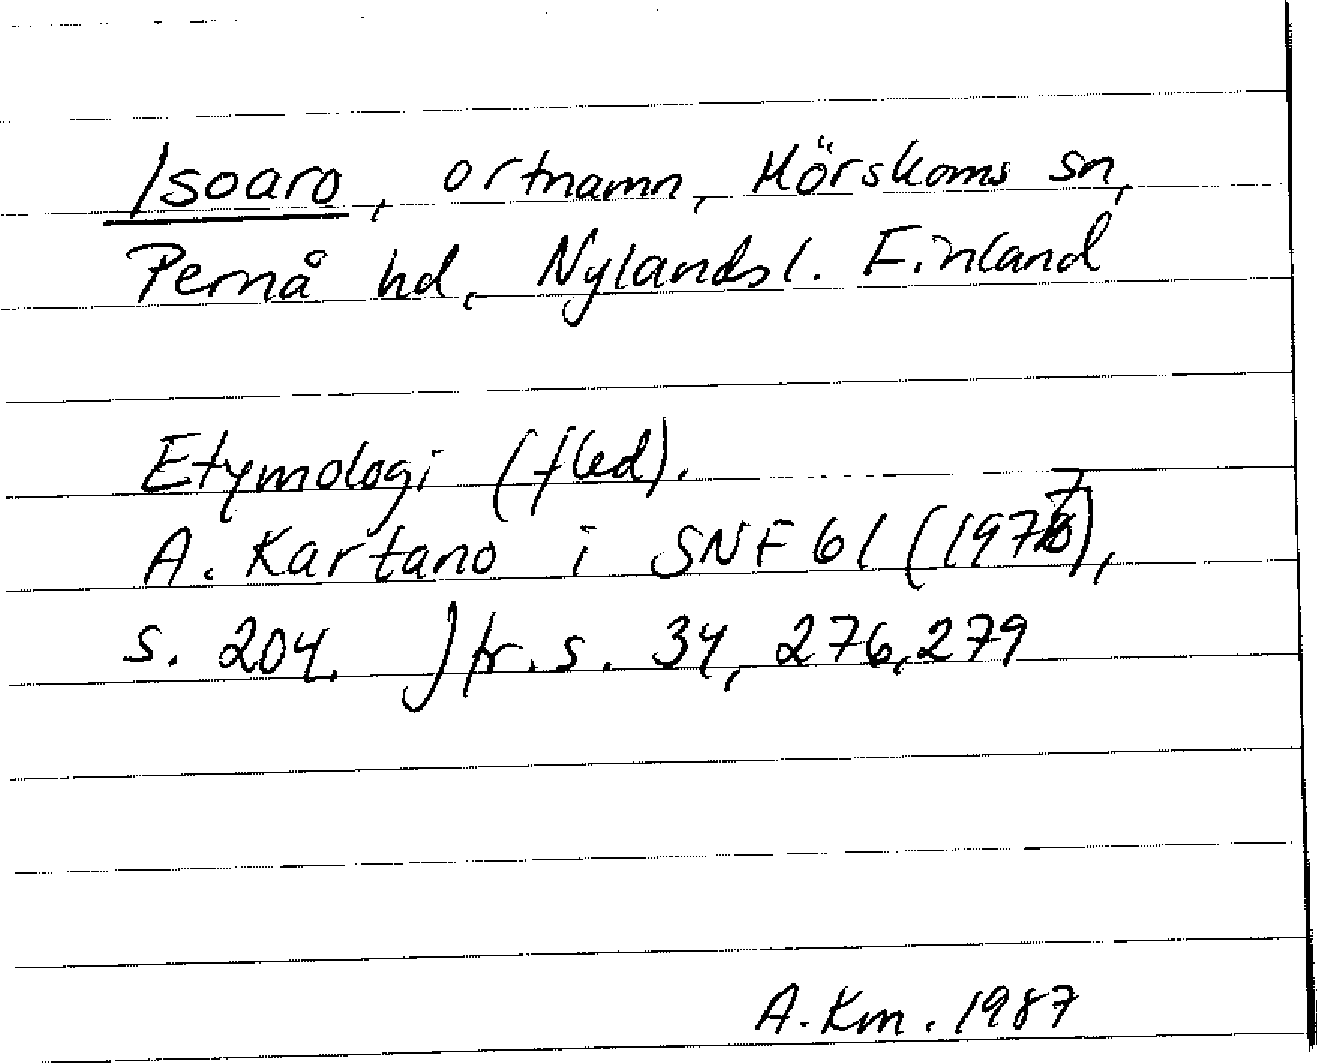 Isoaro, ortnamn, Mörskoms sn,
Pernå hd, Nylands l. Finland
Etymologi (fled).
A. Kartano i SNF 61 (1977),
s. 204. Jfr. s. 34, 276, 279
A. Km. 1987